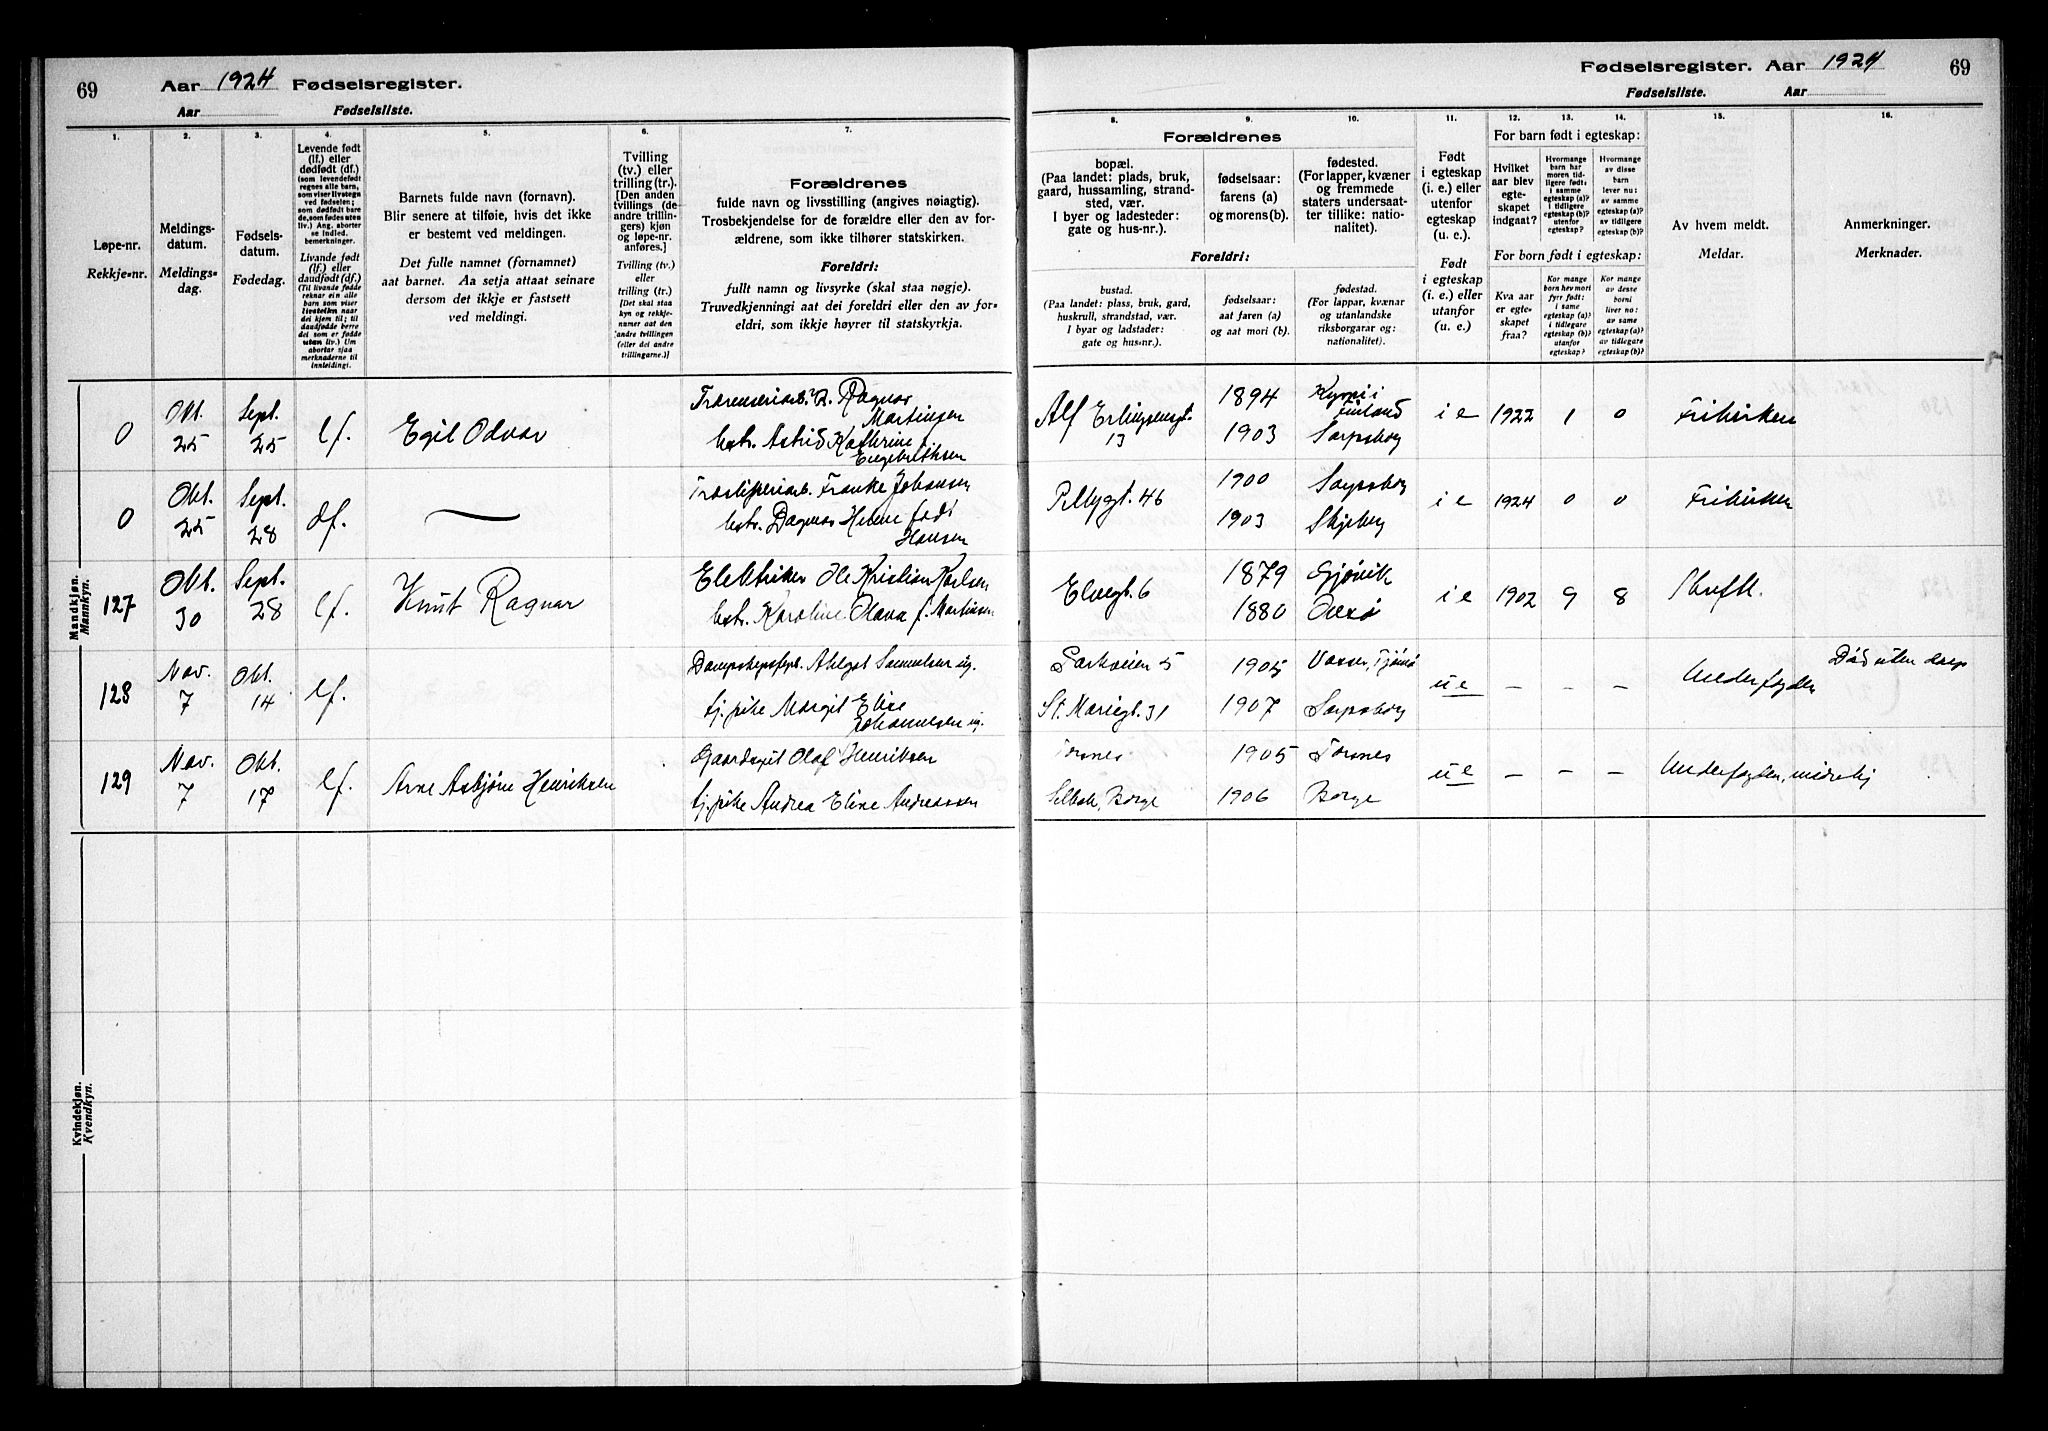 69
Aar 1924 Fødselsregister.
Aar Fødselsliste.
1.
2.
3.
4.
5.
6.
7.
Løpe-nr.
Rekkje-nr.
Meldings-
datum.
Meldings-
dag.
Fødsels-
datum.
Fødedag.
Levende født
(lf.) eller
dødfødt (df.)
(som levendefødt
regnes alle barn,
som viser livstegn
ved fødselen;
som dødfødt bare
de, som fødes uten
liv.) Ang. aborter
se indled.
bemerkninger.
Livande født
(lf.) eller
daudfødt (df.)
(Til livande fødde
reknar ein alle
barn som viser
livsteikn naar
dei kjem til; til
daudfødde berre
dei som er fødde
utan liv.) Um
abortar sjaa
merknaderne til
innleidingi.
Barnets fulde navn (fornavn).
Blir senere at tilføie, hvis det ikke
er bestemt ved meldingen.
Det fulle namnet (fornamnet)
aat barnet. Aa setja attaat seinare
dersom det ikkje er fastsett
ved meldingi.
Tvilling
(tv.) eller
trilling (tr.).
[Den anden
tvillings (de
andre trillin-
gers) kjøn
og løpe-nr.
anføres.]
Tvilling (tv.)
eller
trilling (tr.)
[Det skal staa
kyn og rekkje-
numer aat den
andre tvillingen
(eller dei andre
trillingarne.)]
Forældrenes
fulde navn og livsstilling (angives nøiagtig).
Trosbekjendelse for de forældre eller den av for-
ældrene, som ikke tilhører statskirken.
Foreldri:
fullt namn og livsyrke (skal staa nøgje).
Truvedkjenningi aat dei foreldri eller den av for-
eldri, som ikkje høyrer til statskyrkja.
Mandkjøn.
Mannkyn.
0
Okt.
25
Sept.
25
lf.
Egil Odvar
Ragnar
Martinsen
hstr. Astrid Kathrine f.
Engebretsen
0
Okt.
25
Sept.
28
df.
Franke Johansen
hstr. Dagmar Helene født
Hansen
127
Okt.
30
Sept.
28
lf.
Knut Ragnar
Elektriker Ole Kristian Karlsen
hstr. Karoline Olava f. Martinsen
128
Nov.
7
Okt.
14
lf.
Samuelsen ug.
tj.pike Margit Elise
Johannesen ug.
129
Nov.
7
Okt.
17
lf.
Arne Asbjørn Henriksen
Gaardsgut Olaf Henriksen
tj.pike Andrea Elise Andreassen
Kvindekjøn.
Kvendkyn.
Fødselsregister. Aar 1924 69
Fødselsliste. Aar
8.
9.
10.
11.
12.
13.
14.
15.
16.
Forældrenes
bopæl.
(Paa landet: plads, bruk,
gaard, hussamling, strand-
sted, vær.
I byer og ladesteder:
gate og hus-nr.).
fødselsaar:
farens (a)
og morens (b).
fødested.
(For lapper, kvæner
og fremmede
staters undersaat-
ter tillike: natio-
nalitet).
Foreldri:
bustad.
(Paa landet: plass, bruk, gard,
huskrull, strandstad, vær.
I byar og ladstader:
gate og hus-nr.).
fødselsaar:
aat faren (a)
og aat mori (b).
fødestad.
(For lappar, kvænar
og utanlandske
riksborgarar og:
nationalitet).
Født
i egteskap
(i. e.) eller
utenfor
egteskap
(u. e.).
Født
i egteskap
(i. e.) eller
utanfor
(u. e.)
For barn født i egteskap:
Hvilket
aar blev
egte-
skapet
indgaat?
Hvormange
barn har
moren tid-
ligere født:
i samme
egteskap (a)?
i tidligere
egteskap (b)?
utenfor
egteskap?
Hvormange
av disse
barn
lever nu:
av samme
egteskap (a)?
av tidligere
egteskap (b)?
For born født i egteskap:
Kva aar
er egte-
skapet
fraa?
Kor mange
born hev mori
fyrr født:
i same
egteskap (a)?
i tidlegare
egteskap (b)?
utanfor
egteskap?
Kor mange
av desse
borni
liver no:
av same
egteskap (a)?
av tidlegare
egteskap (b)?
Av hvem meldt.
Meldar.
Anmerkninger.
Merknader.
Alf Erlingsensgt.
13
1894
1903
Kymi i
Finland
Sarpsborg
i e
1922
1
0
Frikirken
Pellygt. 46
1900
1903
Sarpsborg
Skjeberg
i e
1924
0
0
Frikirken
Elvegt. 6
1879
1880
Gjøvik
i e
1902
9
8
Skriftl.
Parkveien 5
St. Mariegt. 31
1905
1907
Tjømø
Sarpsborg
u e
—
—
—
Anderfogden
Død uten daap
Torsnes
Selbak, Borge
1905
1906
Torsnes
Borge
u e
—
—
—